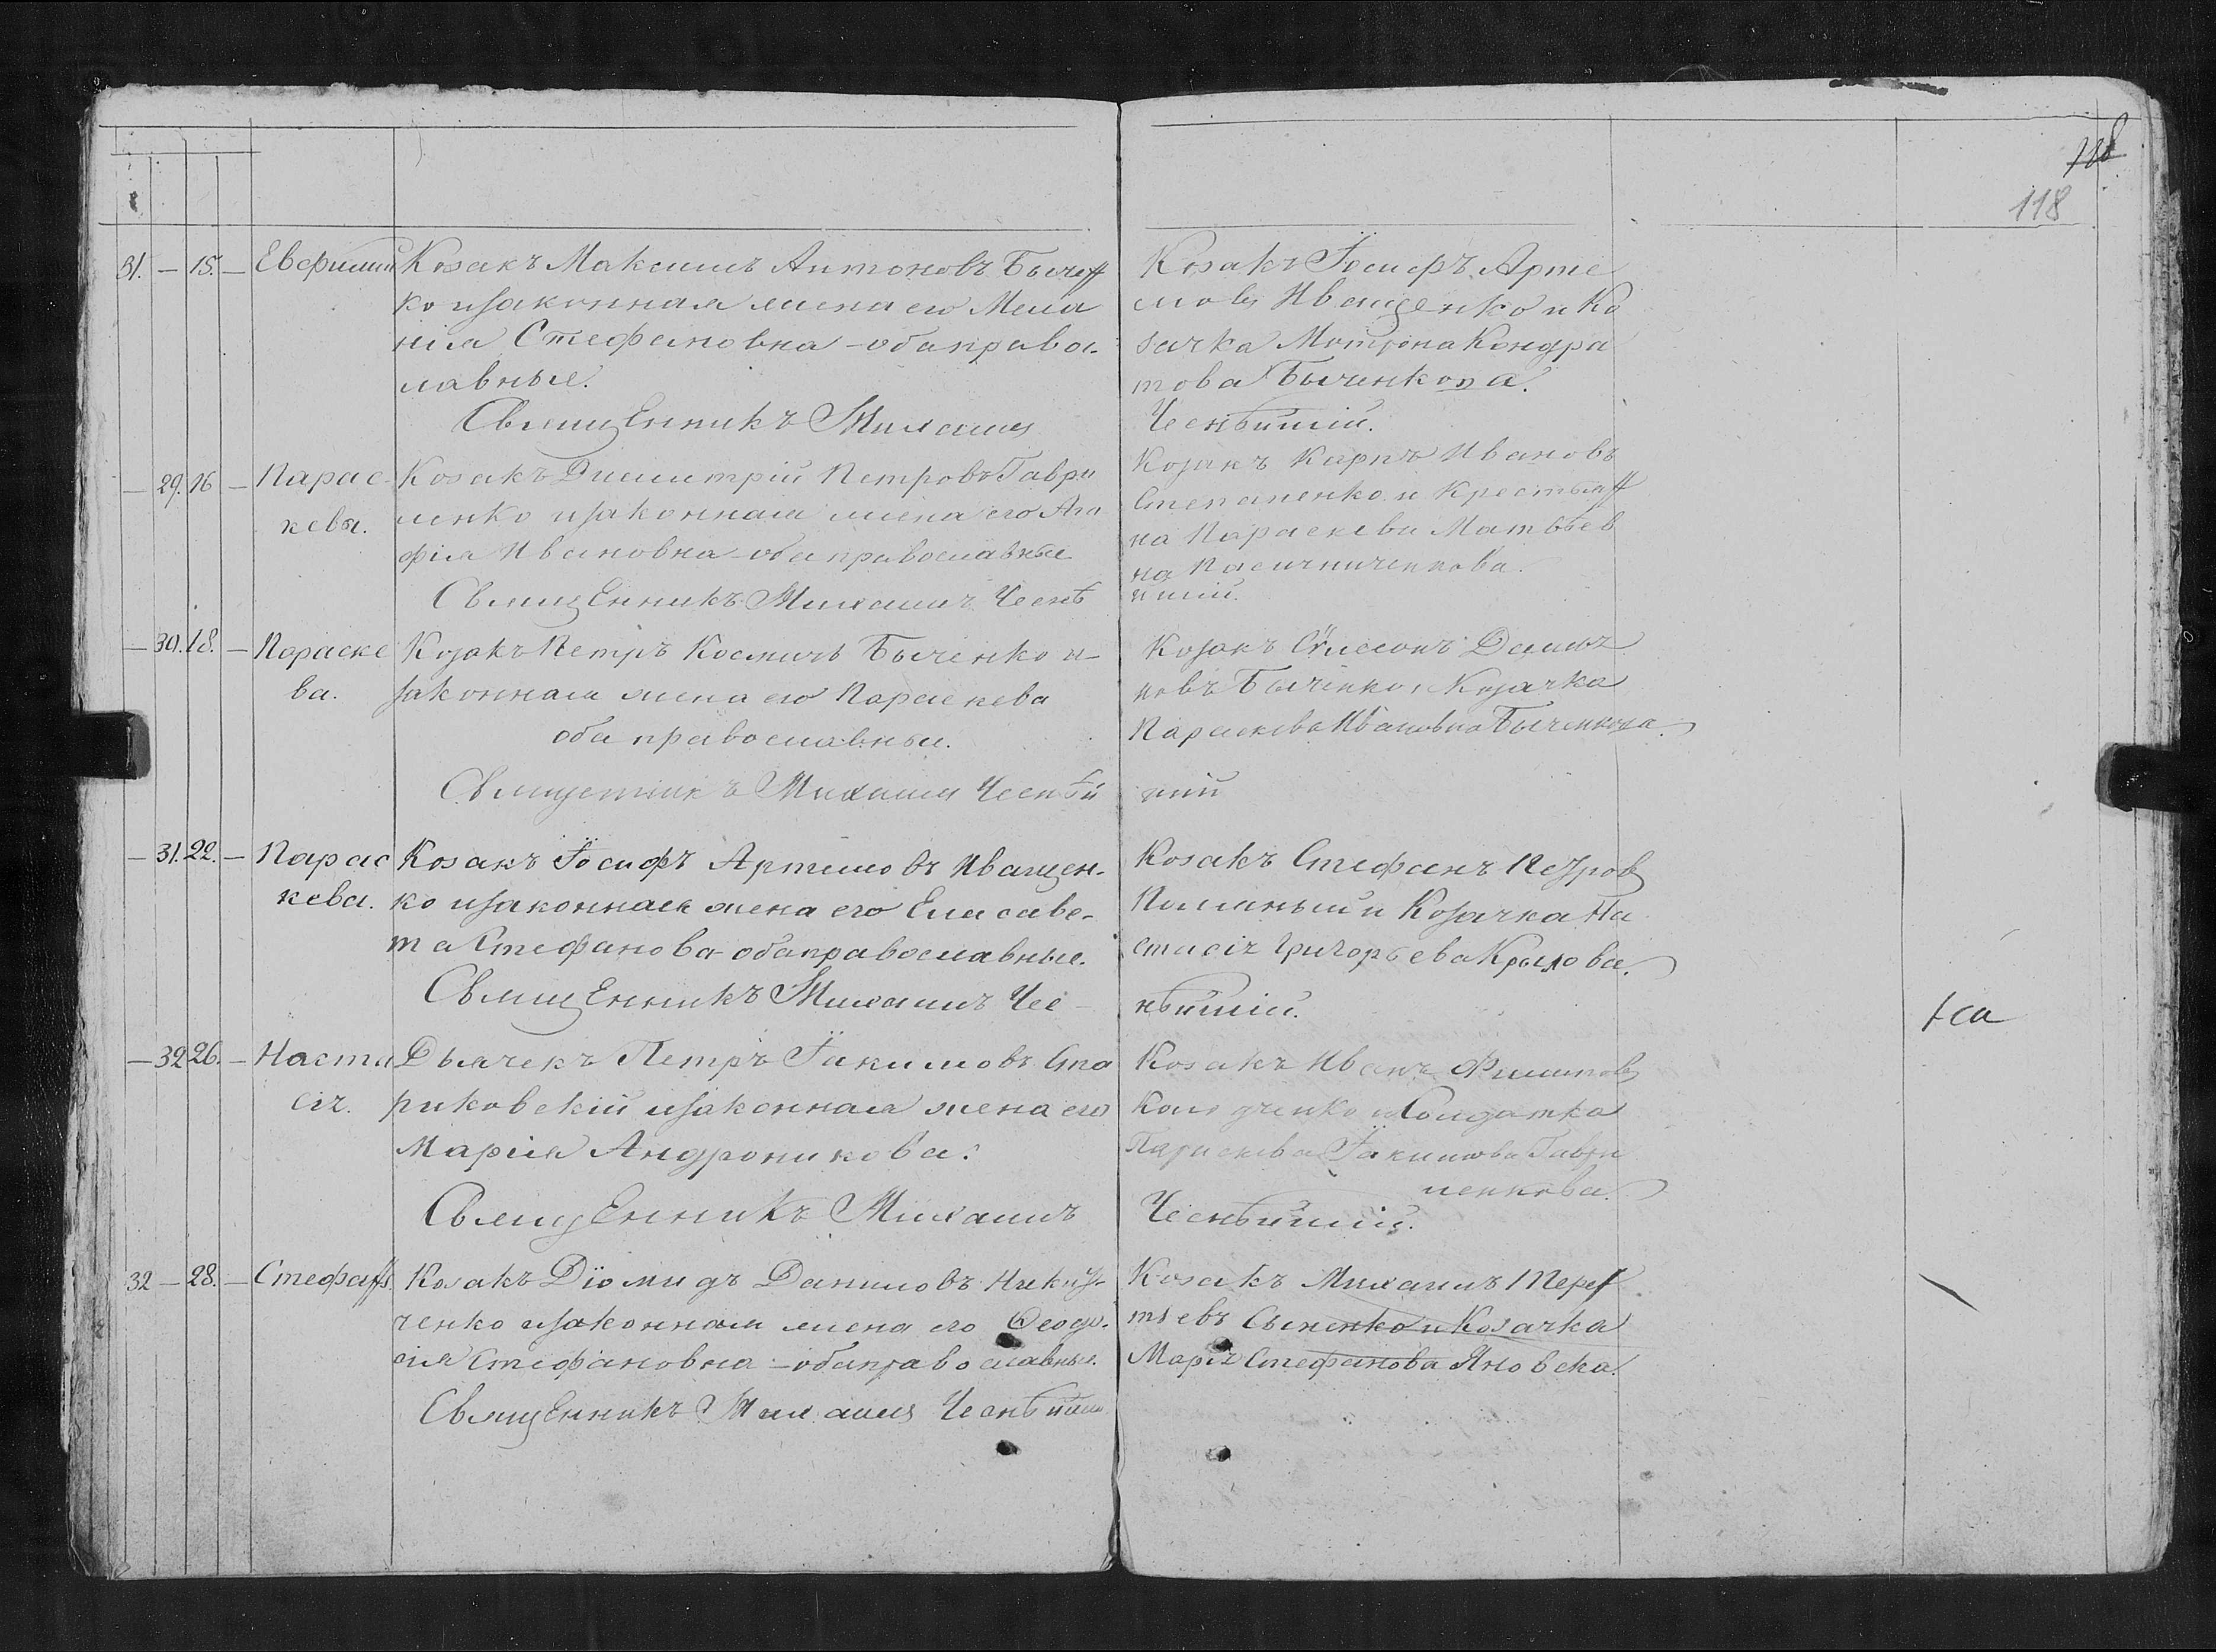 118
118
31. — 15. — Евфимій Козакъ Максимъ Антоновъ Бычен
ко и законная жена его Мела
нія Стефановна - оба право-
славные.
Священникъ Михаилъ
Козакъ Іосифъ Арте
мовъ Иващенко и Ко
зачка Мотрона Кондра
това Быченкова.
Чеснѣйшій.
— 29. 16 — Парас-
кева.
Козакъ Димитрій Петровъ Гаври
ленко и законная жена его Ага
фія Ивановна - оба православные
Священникъ Михаилъ Чеснѣ
Козакъ Карпъ Ивановъ
Степаненко и Крестьян
ка Параскева Матвѣев
на
йшій.
— 30. 18. — Параске
ва.
Козакъ Петръ Космичъ Быченко и
законная жена его Параскева
оба православные.
Священникъ Михаилъ Чеснѣй
Козакъ Сѵмеонъ
новъ Быченко и Козачка
Параскева Ивановна Быченкова.
шій
— 31. 22. — Парас
кева.
Козакъ Іосифъ Артемовъ Иващен-
ко и законная жена его Елисаве-
та Стефанова - оба православные.
Священникъ Михаилъ Чес
Козакъ Стефанъ Петровъ
и Козачка На
стасія Григорьева Крылова.
нѣйшій.
— 32 26. — Наста
сія.
Дьячекъ Петръ Іакимовъ Спа
риковскій и законная жена его
Марія Андроникова.
Священникъ Михаилъ
Козакъ Иванъ Филиповъ
и Солдатка
Параскева Іакимова Гаври
ленкова.
Чеснѣйшій.
32 — 28. — Стефанъ Козакъ Діомидъ Даниловъ
ченко и законная жена его Ѳеодо-
сія Стефановна - оба православные.
Священникъ Михаилъ Чеснѣйшій
Козакъ Михаилъ Терен
тьевъ и Козачка
Марія Стефанова Яновска.